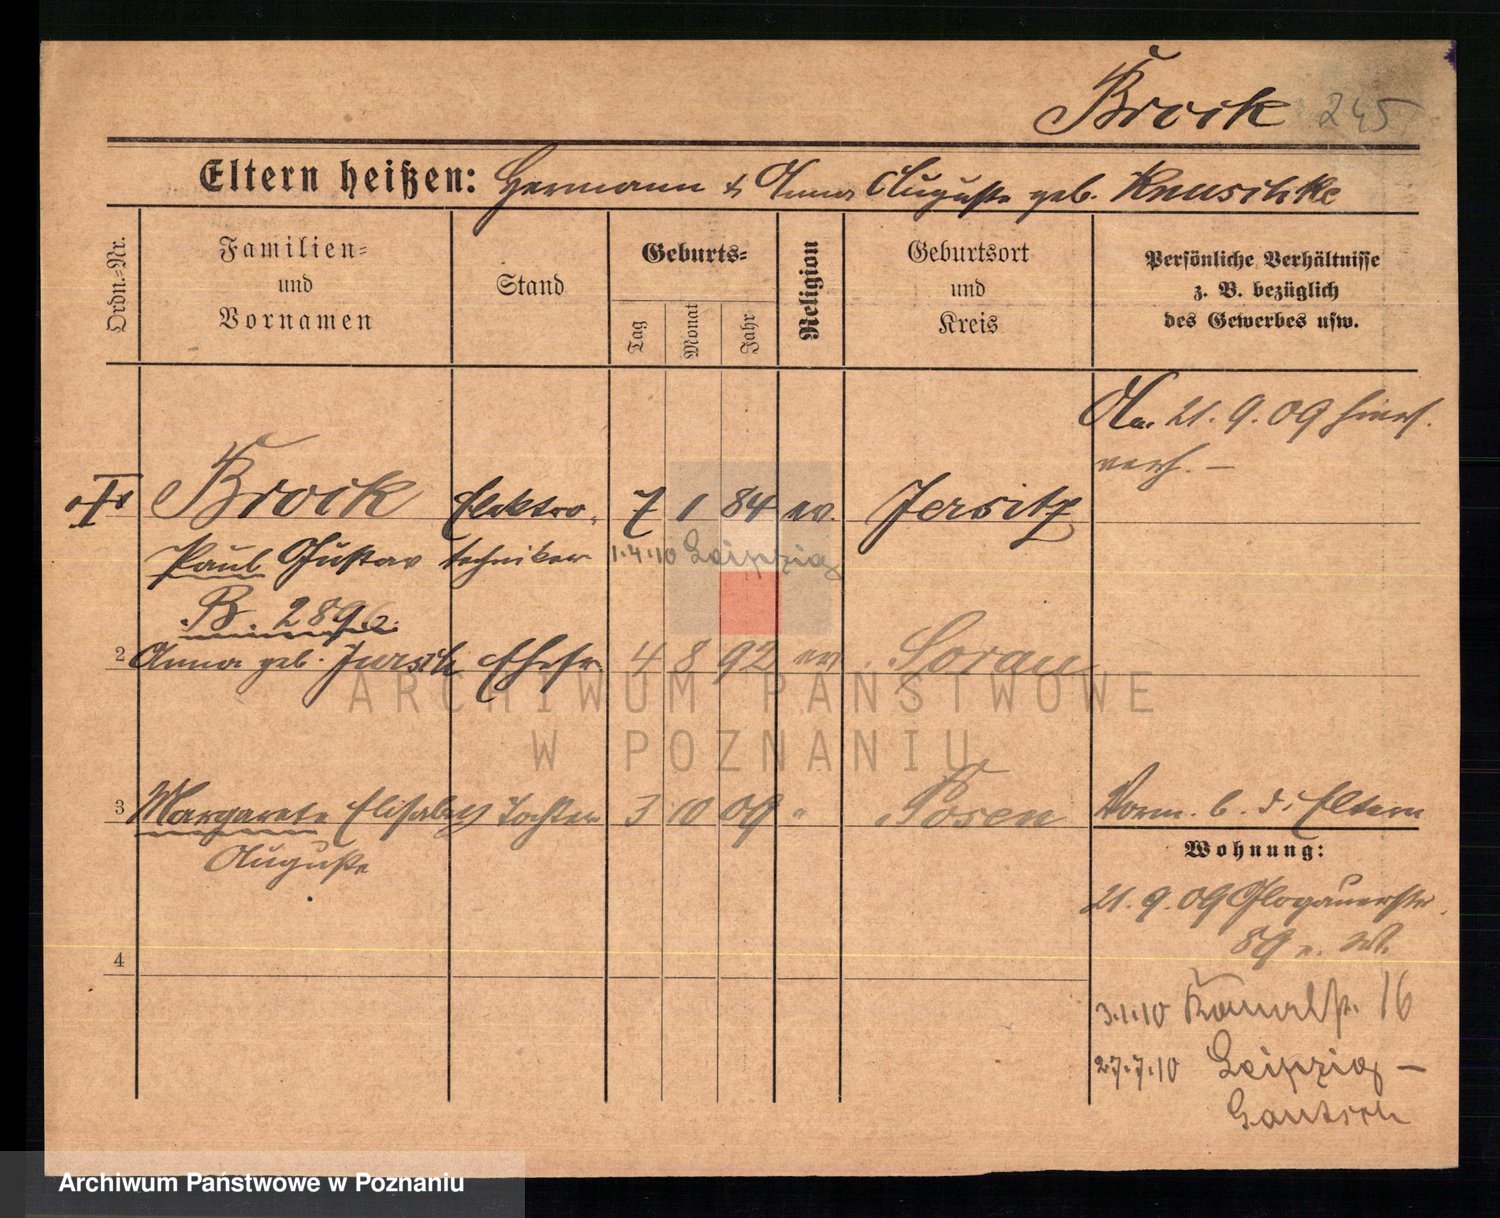 Brock 245
Eltern heißen: Hermann & Anna Auguste geb. Knuschke
Ordn.=Nr.
Familien=
und
Vornamen
Stand
Geburts=
Tag
Monat
Jahr
Religion
Geburtsort
und
Kreis
Persönliche Verhältnisse
z. B. bezüglich
des Gewerbes usw.
21. 9. 09
verh. –
Brock Elektro- 7 1 84 ev. Jersitz
Paul Gustav techniker 1.4.10 Leipzig
B. 2896.
2 Anna geb. Ehefr. 4 8 92 ev. Sorau
ARCHIWUM PAŃSTWOWE
W POZNANIU
3 Margarete Elisabeth Tochter 3 10 09 " Posen Vorm. b. d. Eltern
Auguste
Wohnung:
21. 9. 09 Glogauerstr.
89
4
3.1.10 16
27.7.10 Leipzig –
Gautsch
Archiwum Państwowe w Poznaniu